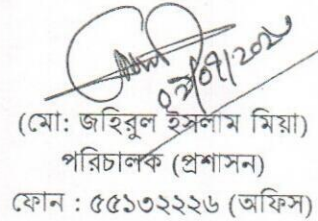 (মো: জহিরুল ইসলাম মিয়া)
পরিচালক (প্রশাসন)
ফোন : ৫৫১৩২২২৬ (অফিস)